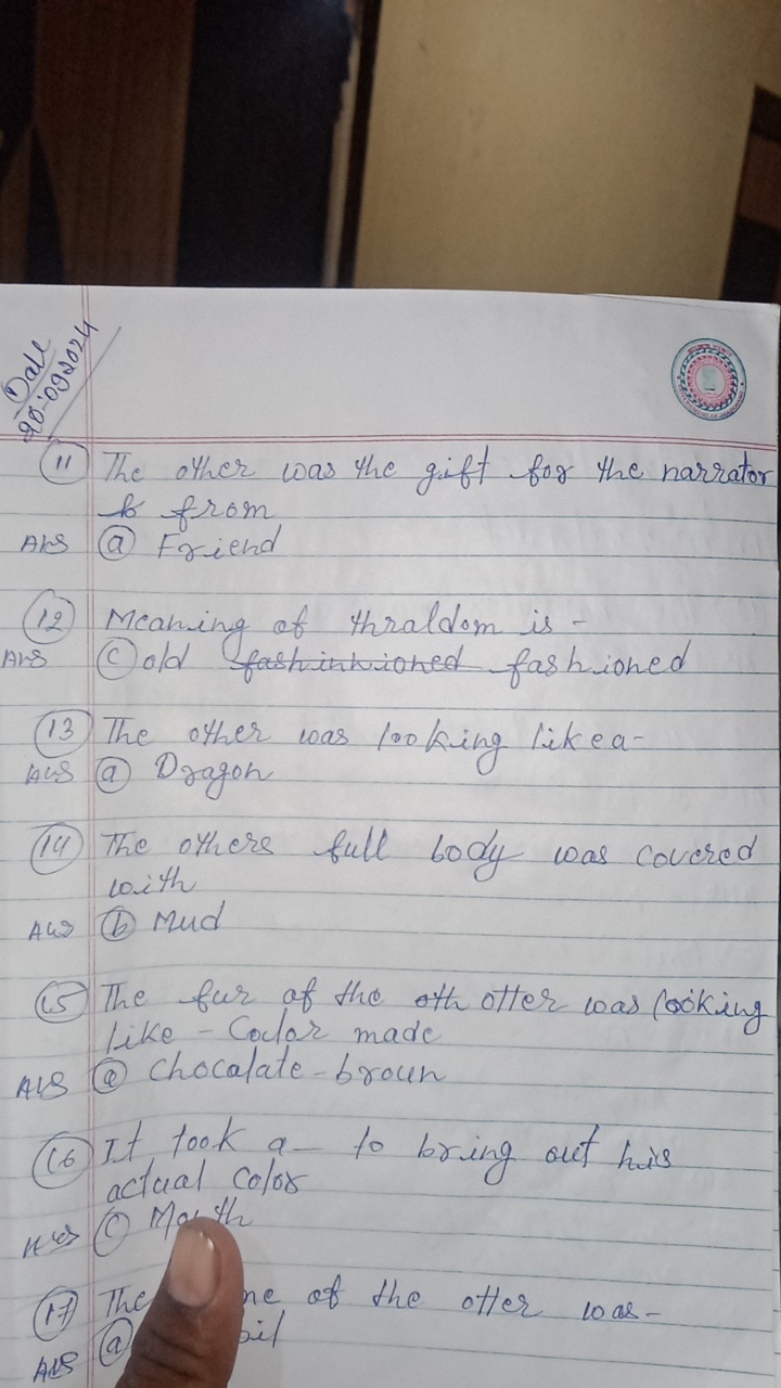 Date
20-09-2024
11 The other was the gift for the narrator
from
Ans a Friend
12 Meaning of thraldom is -
Ans c old fashinhioned fashioned
13 The other was looking like a-
Ans a Dragon
14 The others full body was covered
with
Ans b Mud
15 The fur of the oth otter was looking
like - Coclor made
Ans a Chocalate-broun
16 It took a - to bring out his
actual color
Ans c
17 The of the otter was-
Ans a